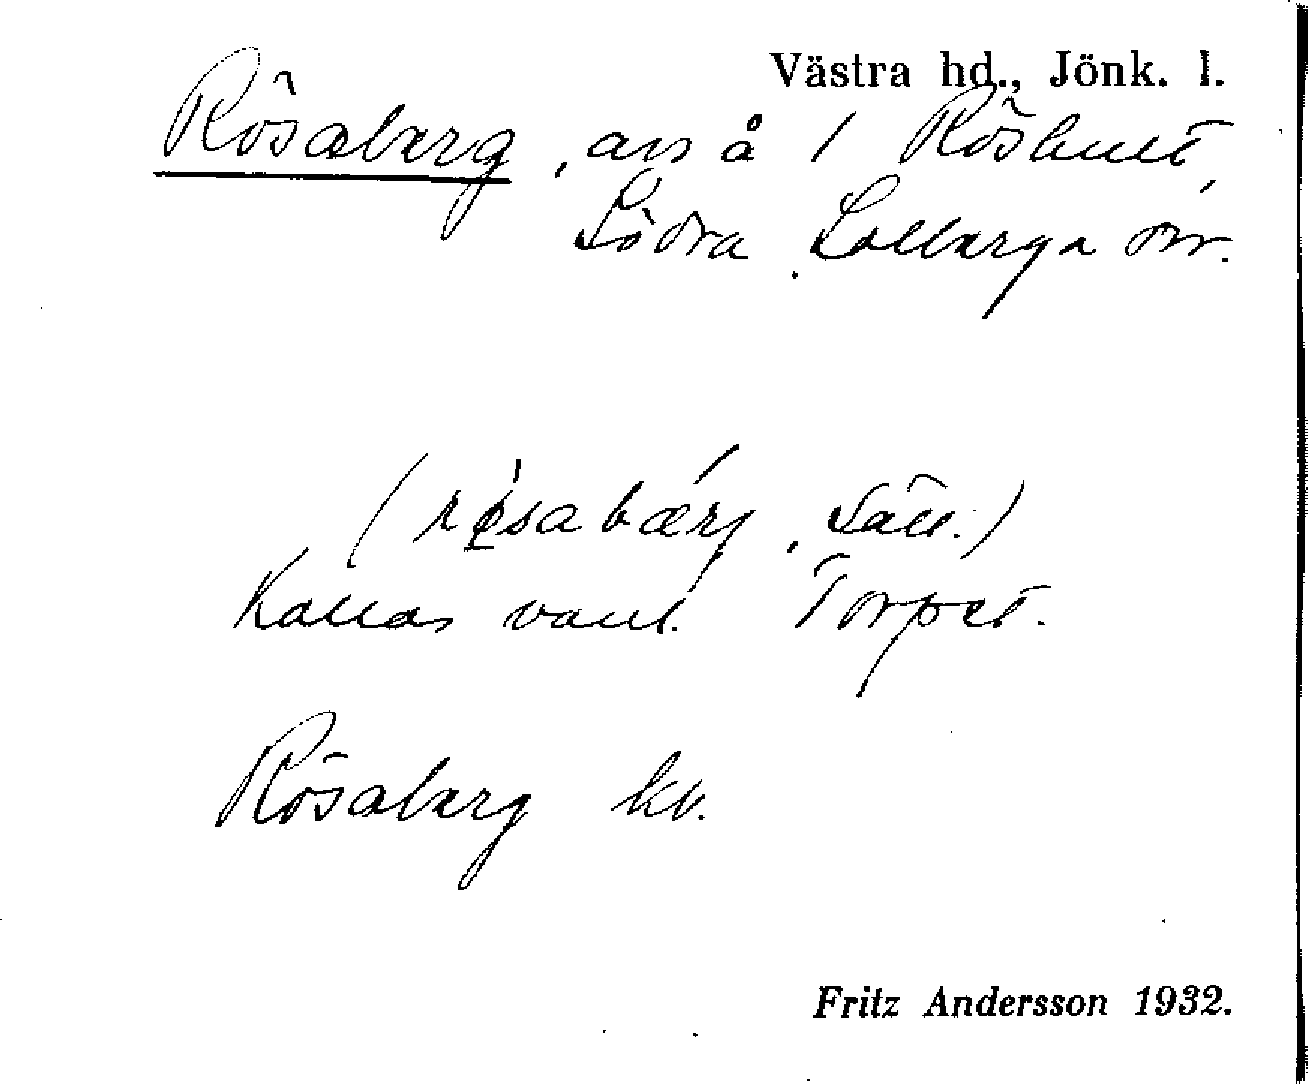 Västra hd., Jönk. l.
Rösaberg, avs å 1 Röshult,
Södra Solberga sn.
Kallas vanl. Torpet.
Rösaberg kv.
Fritz Andersson 1932.